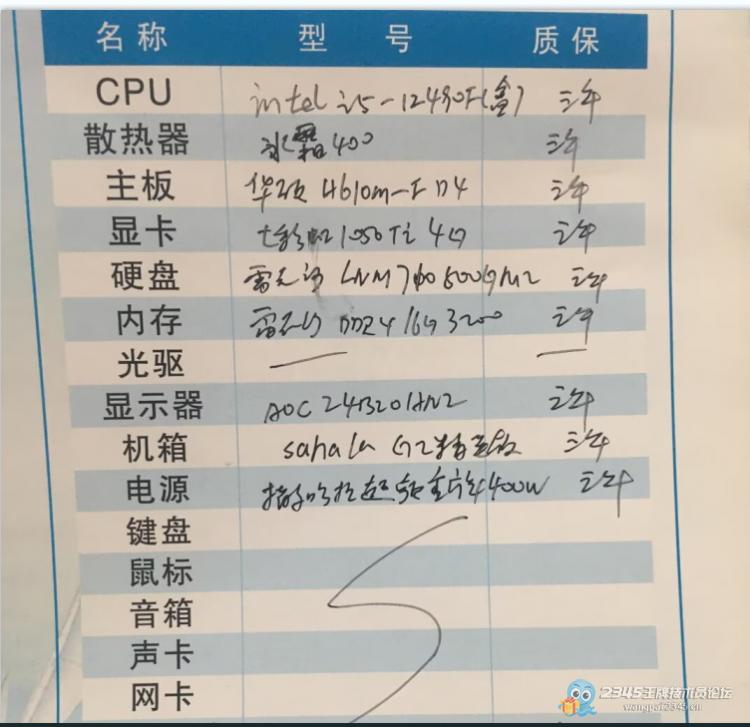 名称 型号 质保
CPU intel i5-12490F(盒) 三年
散热器 冰霜400 三年
主板 华硕 H610m-F D4 三年
显卡 七彩虹1050Ti 4G 三年
硬盘 雷克沙 LNM7 500G M2 三年
内存 雷克沙 DDR4 16G 3200 三年
光驱 — —
显示器 AOC 24B20 三年
机箱 sahara G2 三年
电源 400W 三年
键盘
鼠标
音箱
声卡
网卡
2345王牌技术员论坛
wangpai2345.cn